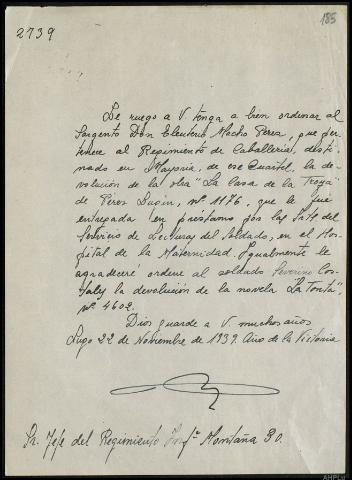 185
2739
Le ruego a V. tenga a bien ordenar al
Sargento Don Eleuterio Macho Perez, que per-
tenece al Regimiento de Caballeria, desti-
nado en Mayoria, de ese Cuartel, la de-
volución de la obra "La Casa de la Troya"
de Pérez Lugin, nº 1176, que le fue
entregada en prestamo por las Srtas del
Servicio de Lecturas del Soldado, en el Hos-
pital de la Maternidad. Igualmente le
agradeceré ordene al soldado Severino Cos-
tales la devolución de la novela "La Tonta",
nº 4602.
Dios guarde a V. muchos años
Lugo 22 de Noviembre de 1939. Año de la Victoria
Sr. Jefe del Regimiento Infª Montaña 30.
AHPLu